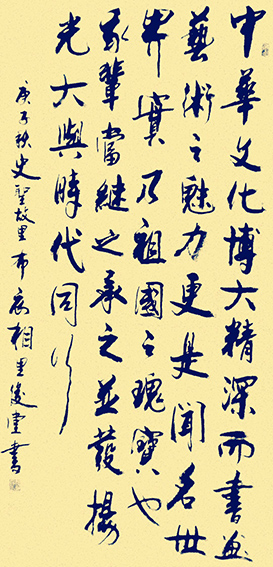 中華文化博大精深而書画
藝術之魅力更是聞名世
界實乃祖國之瑰寶也
我輩當繼之承之並發揚
光大與時代同行
庚子秋史聖故里布衣相里書